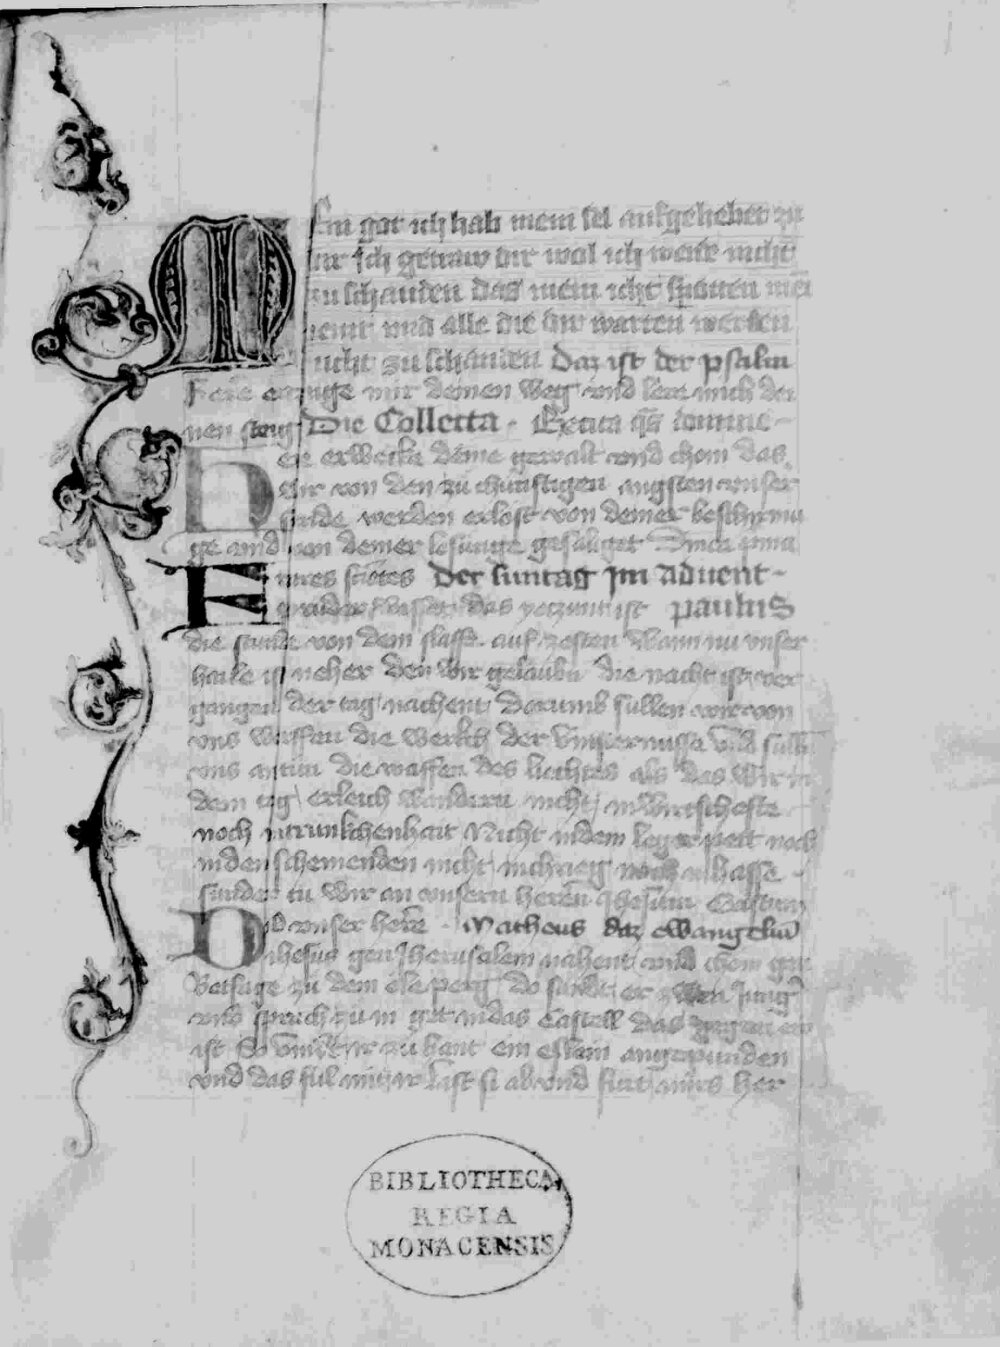 Mein got ich hab mein sel aufgehebet zu
dir Ich getraw dir wol ich werde nicht
zu schanden das mein icht spotten mei
veint und alle die dir warten werden
nicht zu schanden Daz ist der psalm
Here erzaige mir deinen weg und lere mich dei
nen steig Die Collecta · Excita qs domine
Herr erwecke deine gewalt und chom das
wir von den zu chunftigen angsten unser
sunde werden erlost von deiner beschirmu
ge und von deiner losunge gesaliget
Der suntag Im advent
Bruder wisset das yeczunt ist paulus
die stunde von dem slaffe auf zesten Wann nu unser
haile ist neher den wir gelaubn die nacht ist ver
gangen der tag nachent Dorumb sullen wir von
uns werffen die werkch der vinsternusse und sulln
uns antun die waffen des liechtes als das wir in
dem tag erleich wandern nicht in wirtschefte
noch intrunkchenhait Nicht indem leger pett noch
inden schemenden nicht inchrieg noch in hasse
sunder tu wir an unsern heren Jhesum Cristum
Do unser here · Matheus daz ewangeliu
Jhesus gen Jherusalem nahent und chom gen
Betfage zu dem ole perg do sandt er zwen Jung
und sprach zu in get in das Castell das gegen ew
ist So vindet ir zu hant ein eslein angepunden
und das ful mit ir last si ab und furt mirs her
BIBLIOTHECA
REGIA
MONACENSIS